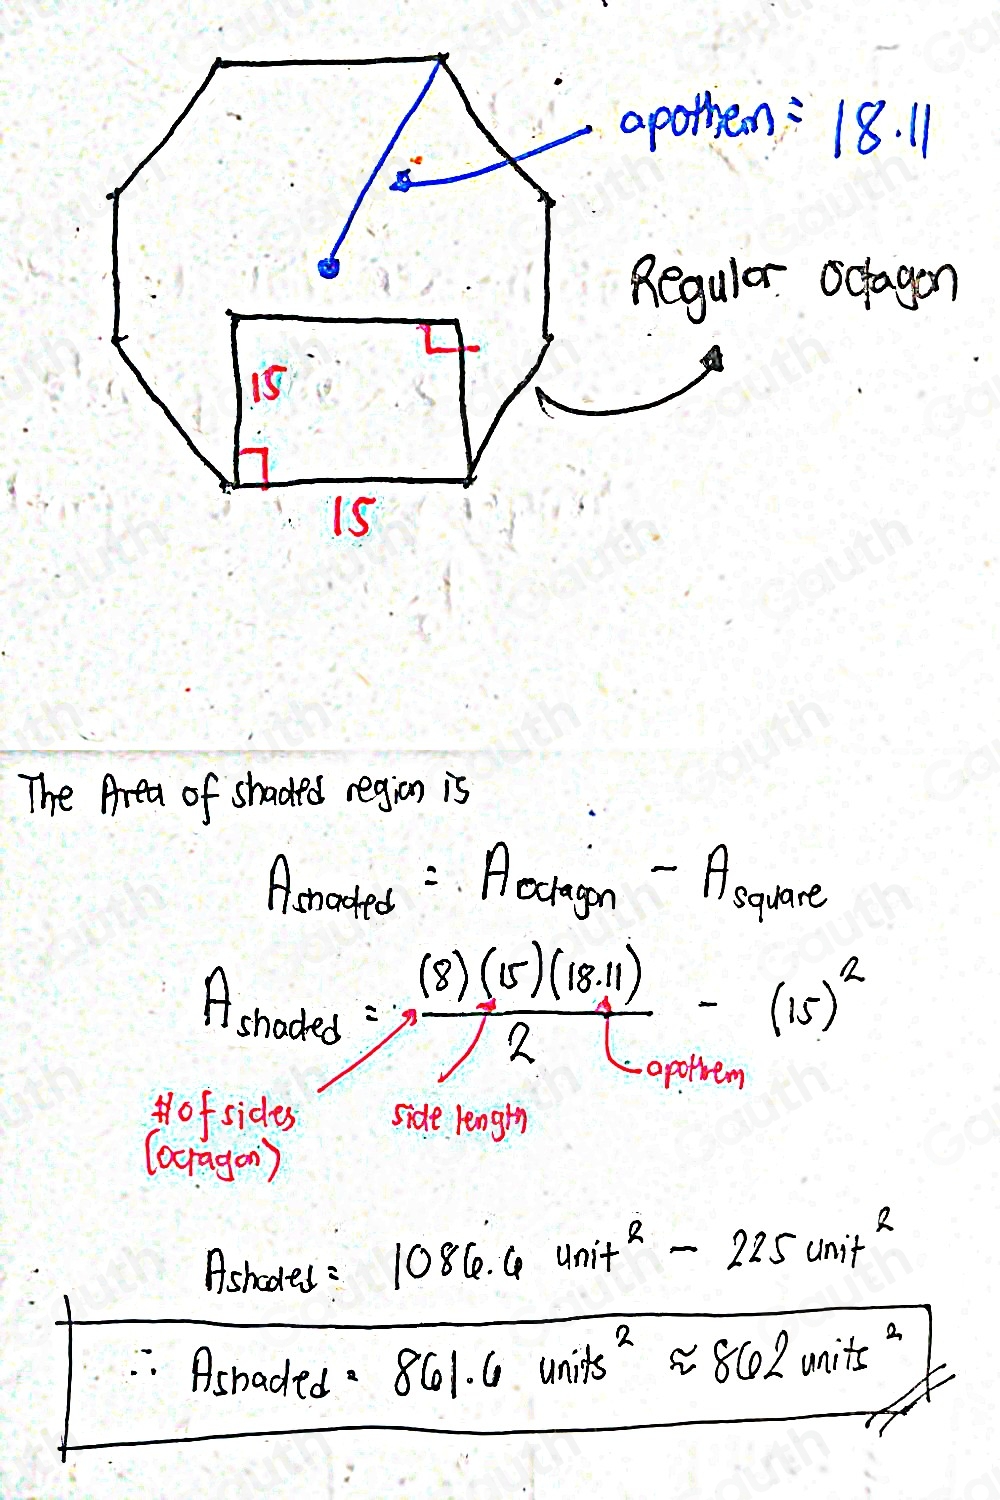 apothem = 18.11
Regular octagon
15
15
The Area of shaded region is
A shaded = A octagon - A square
A shaded = (8)(15)(18.11) / 2 - (15)²
apothem
# of sides
(octagon)
side length
A shaded = 1086.6 unit² - 225 unit²
∴ A shaded = 861.6 units² ≈ 862 units²